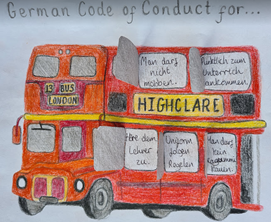 German Code of Conduct for...
Man darf
nicht
mobben.
Pünktlich zum
Unterrich
ankommen.
13 BUS
LONDON
HIGHCLARE
Höre dem
Lehrer
zu.
Uniform
folgen
Regelen
Man darf
kein
Kaugummi
kauen.